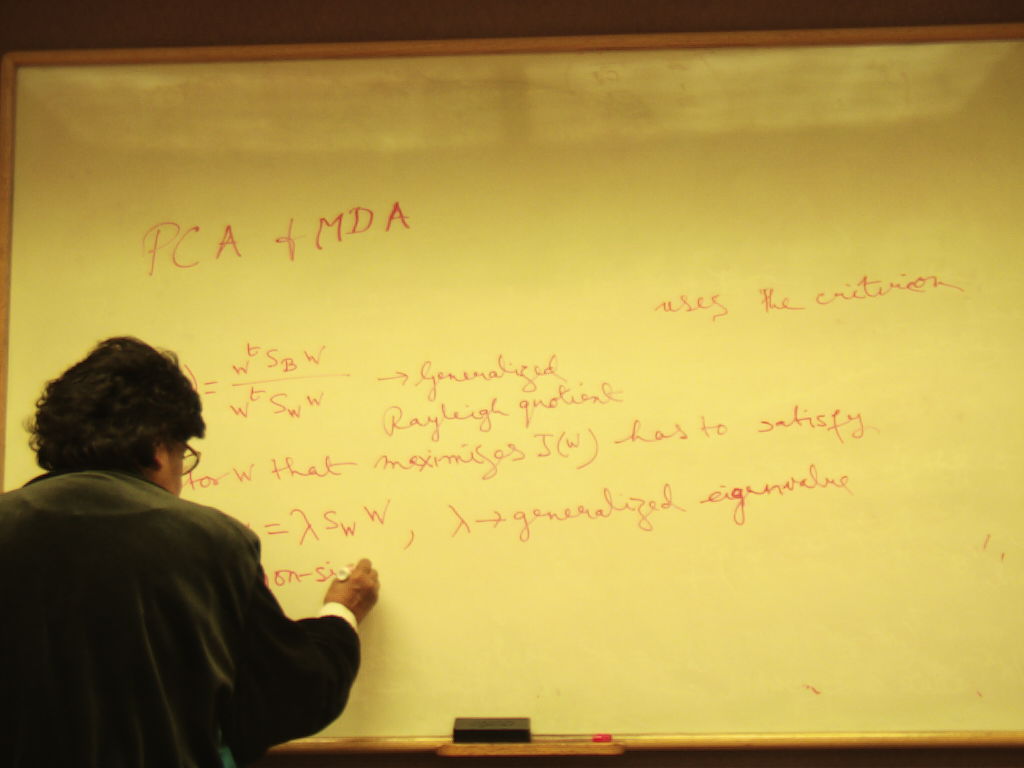 PCA & MDA
uses the criterion
) = wᵗ S_B w / wᵗ S_W w → Generalized
Rayleigh quotient
tor w that maximizes J(w) has to satisfy
= λ S_W w , λ → generalized eigenvalue
on-si